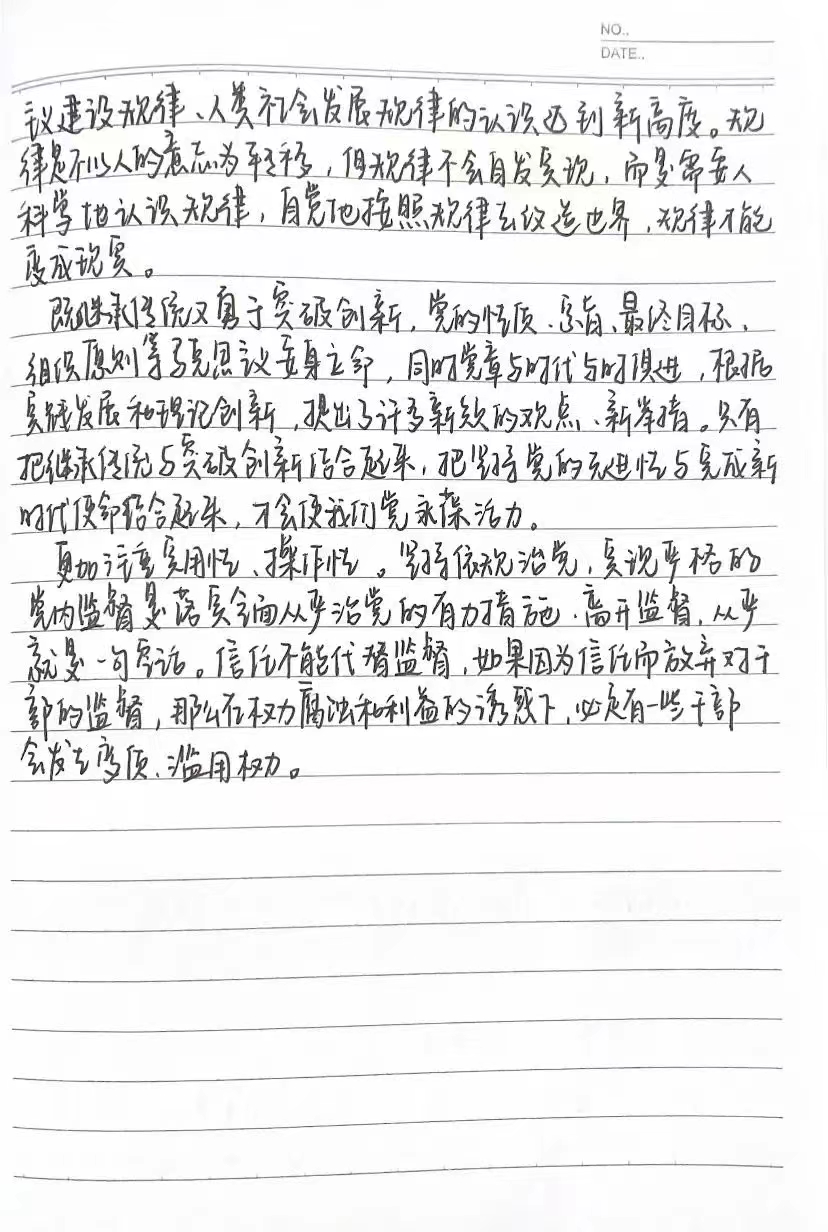 NO..
DATE..
议建设规律、人类社会发展规律的认识达到新高度。规
律是不以人的意志为转移，但规律不会自发实现，而是需要人
科学地认识规律，自觉地按照规律去改造世界，规律才能
变成现实。
既继承传统又勇于突破创新，党的性质、宗旨、最终目标、
组织原则等马克思议安身立命，同时党章与时代与时俱进，根据
实践发展和理论创新，提出了许多新的观点、新举措。只有
把继承传统与突破创新结合起来，把坚持党的先进性与完成新
时代使命结合起来，才会使我们党永葆活力。
更加注重实用性、操作性。坚持依规治党，实现严格的
党内监督是落实全面从严治党的有力措施。离开监督，从严
就是一句空话。信任不能代替监督，如果因为信任而放弃对干
部的监督，那么在权力腐蚀和利益的诱惑下，必定有一些干部
会发生变质、滥用权力。